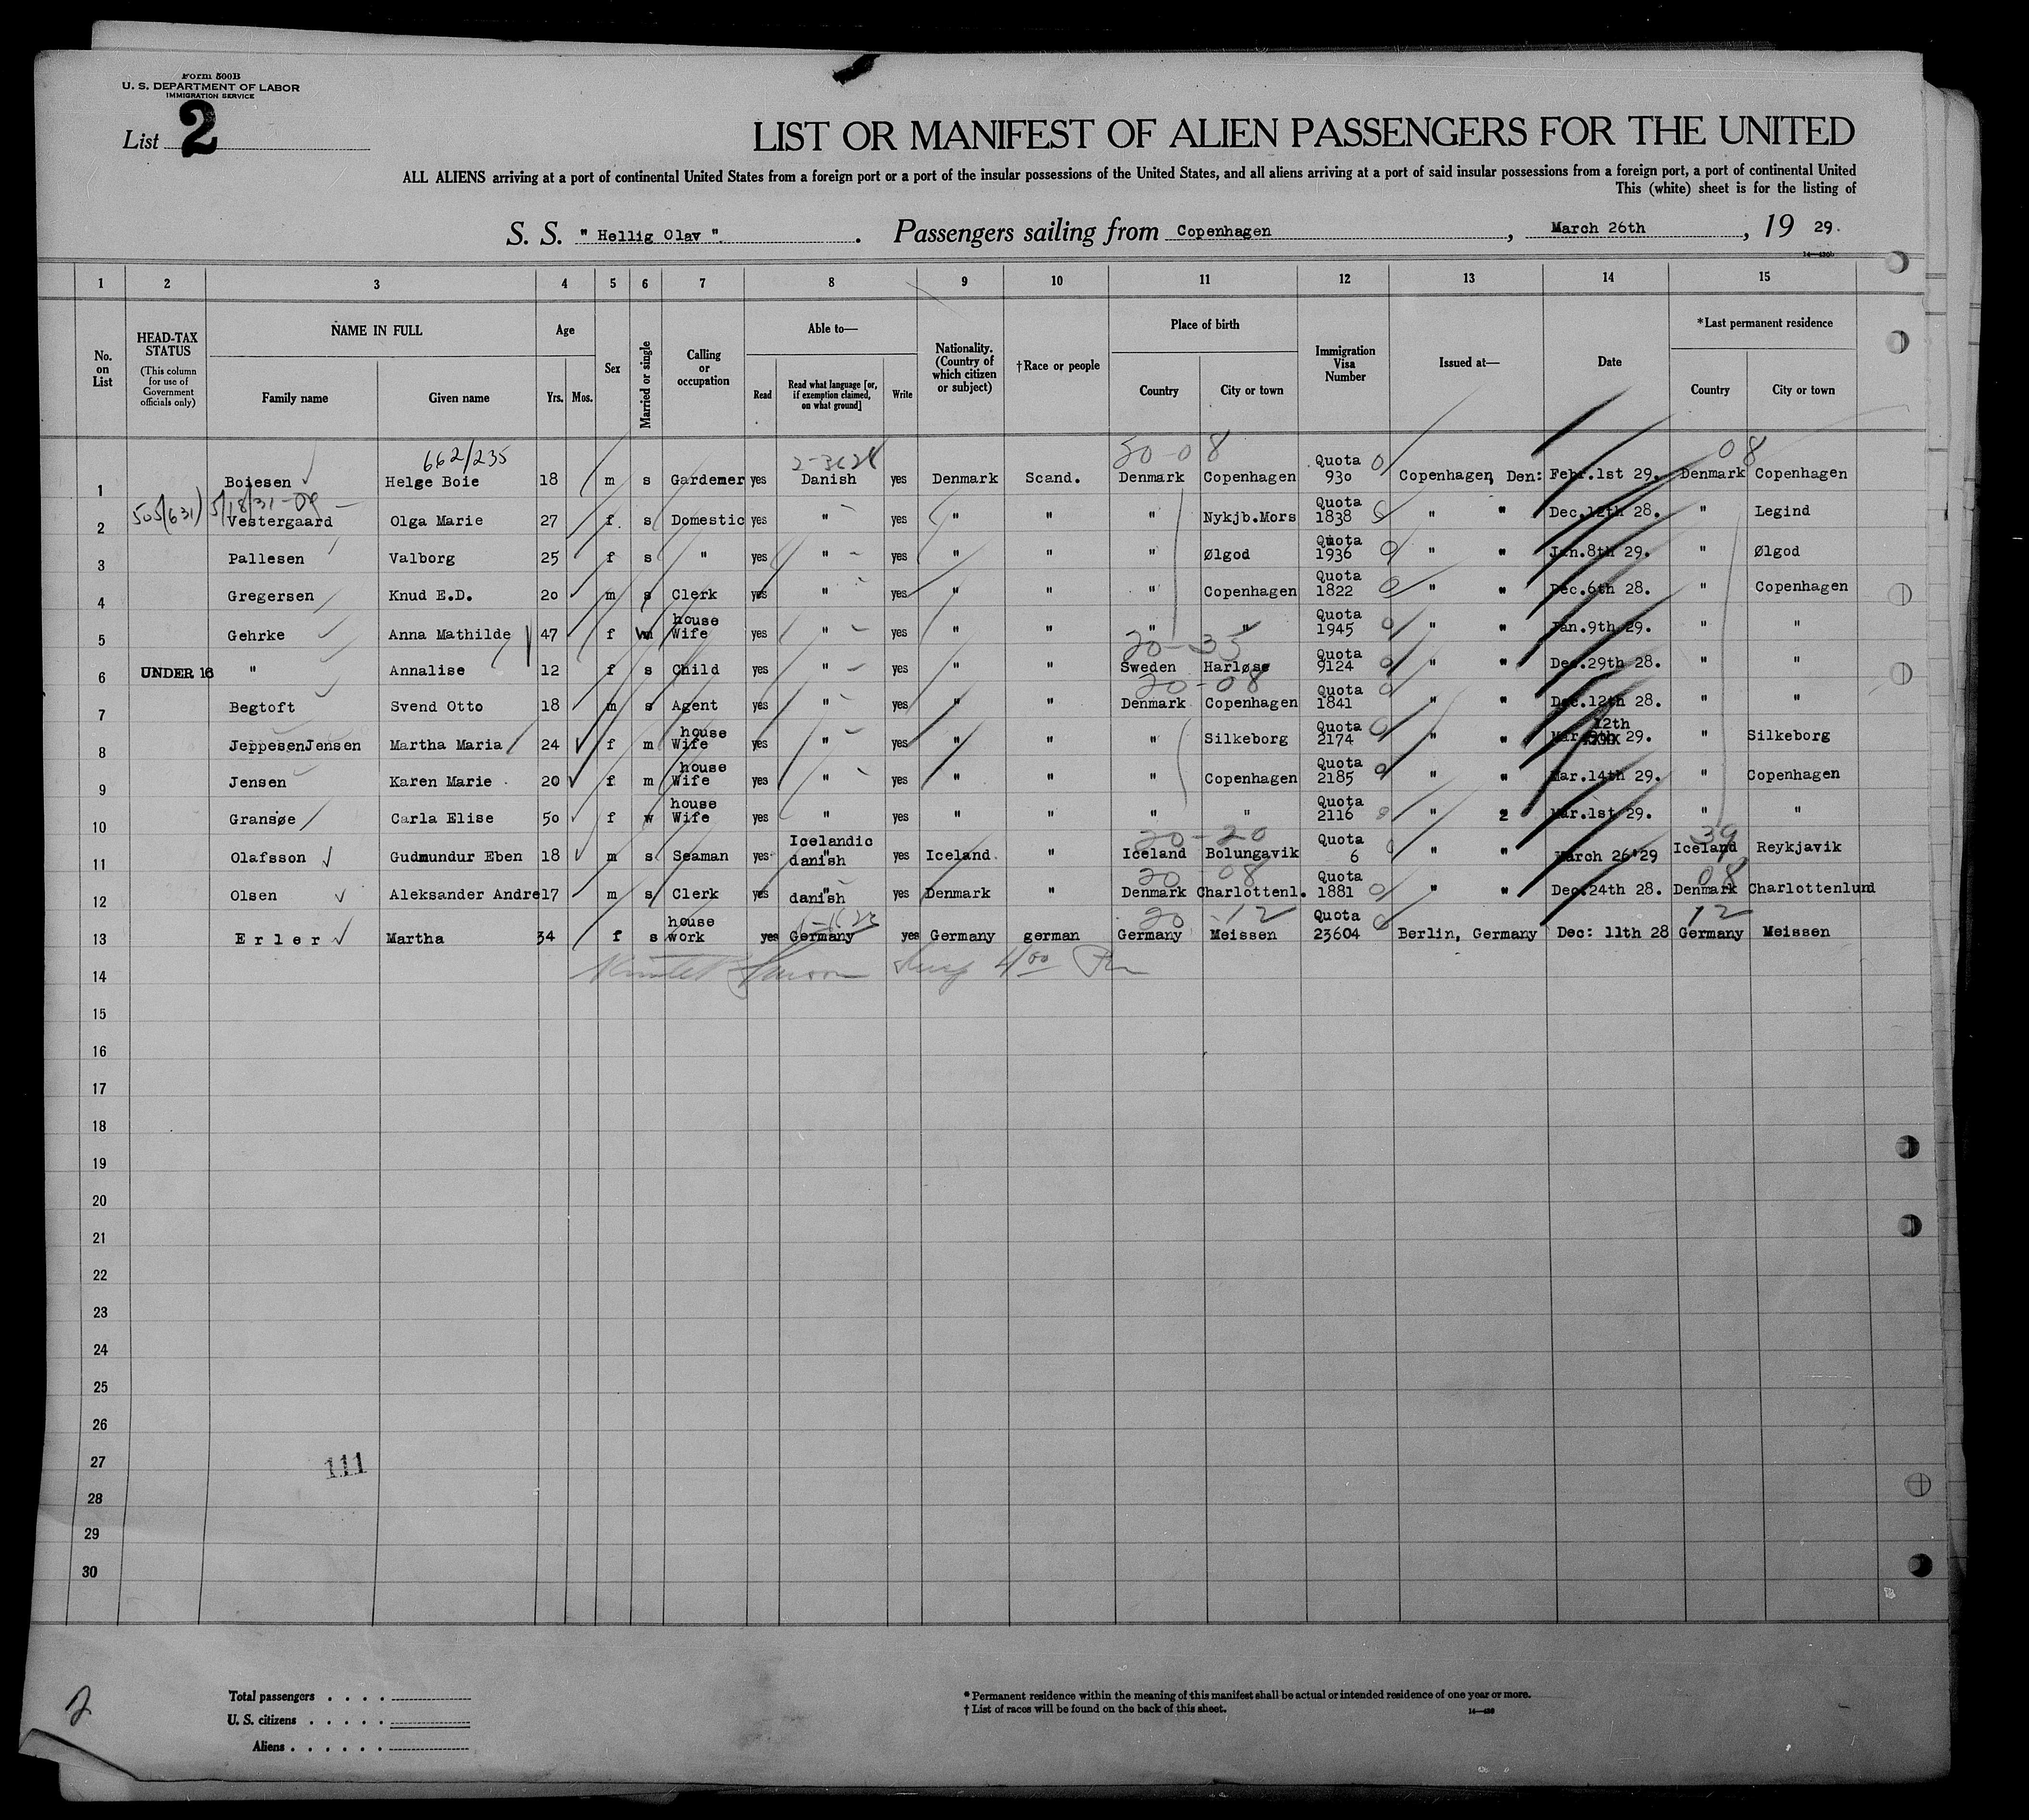 Form 500B
U. S. DEPARTMENT OF LABOR
IMMIGRATION SERVICE
List 2
LIST OR MANIFEST OF ALIEN PASSENGERS FOR THE UNITED
ALL ALIENS arriving at a port of continental United States from a foreign port or a port of the insular possessions of the United States, and all aliens arriving at a port of said insular possessions from a foreign port, a port of continental United
This (white) sheet is for the listing of
S. S. " Hellig Olav ". Passengers sailing from Copenhagen, March 26th, 19 29.
1 2 3 4 5 6 7 8 9 10 11 12 13 14 15
No. on List
HEAD-TAX STATUS (This column for use of Government officials only)
NAME IN FULL
Family name Given name
Age
Yrs. Mos.
Sex
Married or single
Calling or occupation
Able to—
Read Read what language [or, if exemption claimed, on what ground] Write
Nationality. (Country of which citizen or subject)
†Race or people
Place of birth
Country City or town
Immigration Visa Number
Issued at—
Date
*Last permanent residence
Country City or town
662/235 20-08 08
1 Boiesen Helge Boie 18 m s Gardener yes Danish yes Denmark Scand. Denmark Copenhagen Quota 930 Copenhagen, Den: Febr.1st 29. Denmark Copenhagen
505/631 5/18/31-09
2 Vestergaard Olga Marie 27 f. s Domestic yes " yes " " " Nykjb.Mors Quota 1838 " " Dec.12th 28. " Legind
3 Pallesen Valborg 25 f s " yes " yes " " " Ølgod Quota 1936 " " Jan.8th 29. " Ølgod
4 Gregersen Knud E.D. 20 m s Clerk yes " yes " " " Copenhagen Quota 1822 " " Dec.6th 28. " Copenhagen
5 Gehrke Anna Mathilde 47 f m house Wife yes " yes " " " " Quota 1945 " " Jan.9th 29. " "
20-35
6 UNDER 16 " Annalise 12 f s Child yes " yes " " Sweden Harløse Quota 9124 " " Dec.29th 28. " "
20-08
7 Begtoft Svend Otto 18 m s Agent yes " yes " " Denmark Copenhagen Quota 1841 " " Dec.12th 28. " "
8 JeppesenJensen Martha Maria 24 f m house Wife yes " yes " " " Silkeborg Quota 2174 " " Mar. 12th 29. " Silkeborg
9 Jensen Karen Marie 20 f m house Wife yes " yes " " " Copenhagen Quota 2185 " " Mar.14th 29. " Copenhagen
10 Gransøe Carla Elise 50 f w house Wife yes " yes " " " " Quota 2116 " 2 Mar.1st 29. " "
20-20 39
11 Olafsson Gudmundur Eben 18 m s Seaman yes Icelandic danish yes Iceland " Iceland Bolungavik Quota 6 " " March 26'29 Iceland Reykjavik
20-08 08
12 Olsen Aleksander Andre 17 m s Clerk yes danish yes Denmark " Denmark Charlottenl. Quota 1881 " " Dec.24th 28. Denmark Charlottenlund
20-12 12
13 Erler Martha 34 f s house work yes Germany yes Germany german Germany Meissen Quota 23604 Berlin, Germany Dec: 11th 28 Germany Meissen
14
15
16
17
18
19
20
21
22
23
24
25
26
27
111
28
29
30
2
Total passengers . . . .
U. S. citizens . . . . .
Aliens . . . . . .
* Permanent residence within the meaning of this manifest shall be actual or intended residence of one year or more.
† List of races will be found on the back of this sheet.